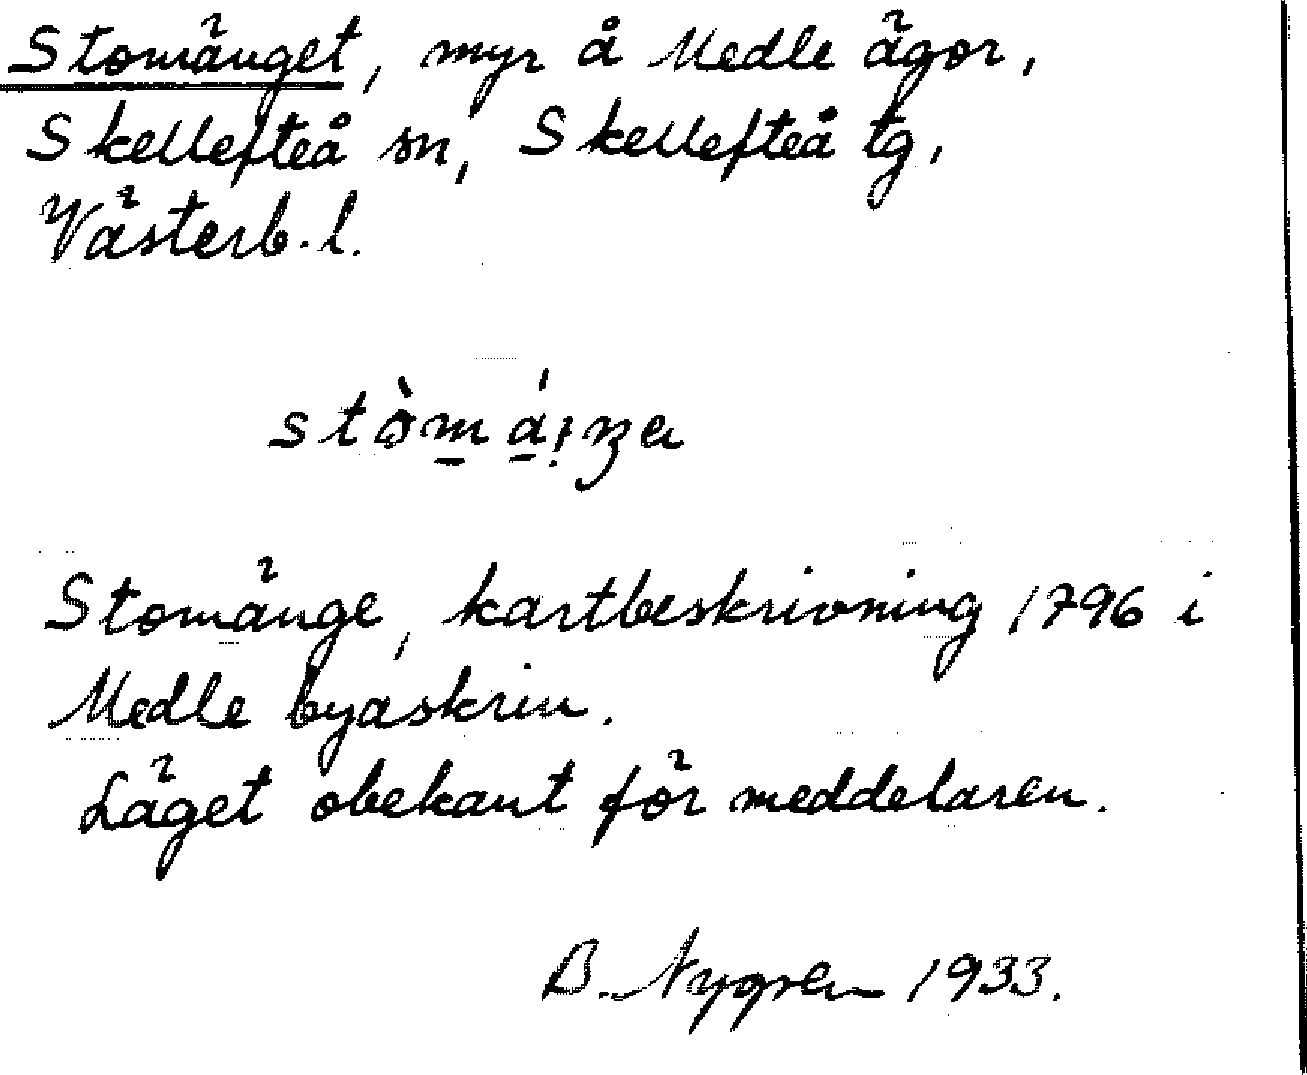 Stomänget, myr å Medle ägor,
Skellefteå sn, Skellefteå tg,
Västerb. l.
Stomänge, kartbeskrivning 1796 i
Medle byaskrin.
Läget obekant för meddelaren.
B. Nygren 1933.